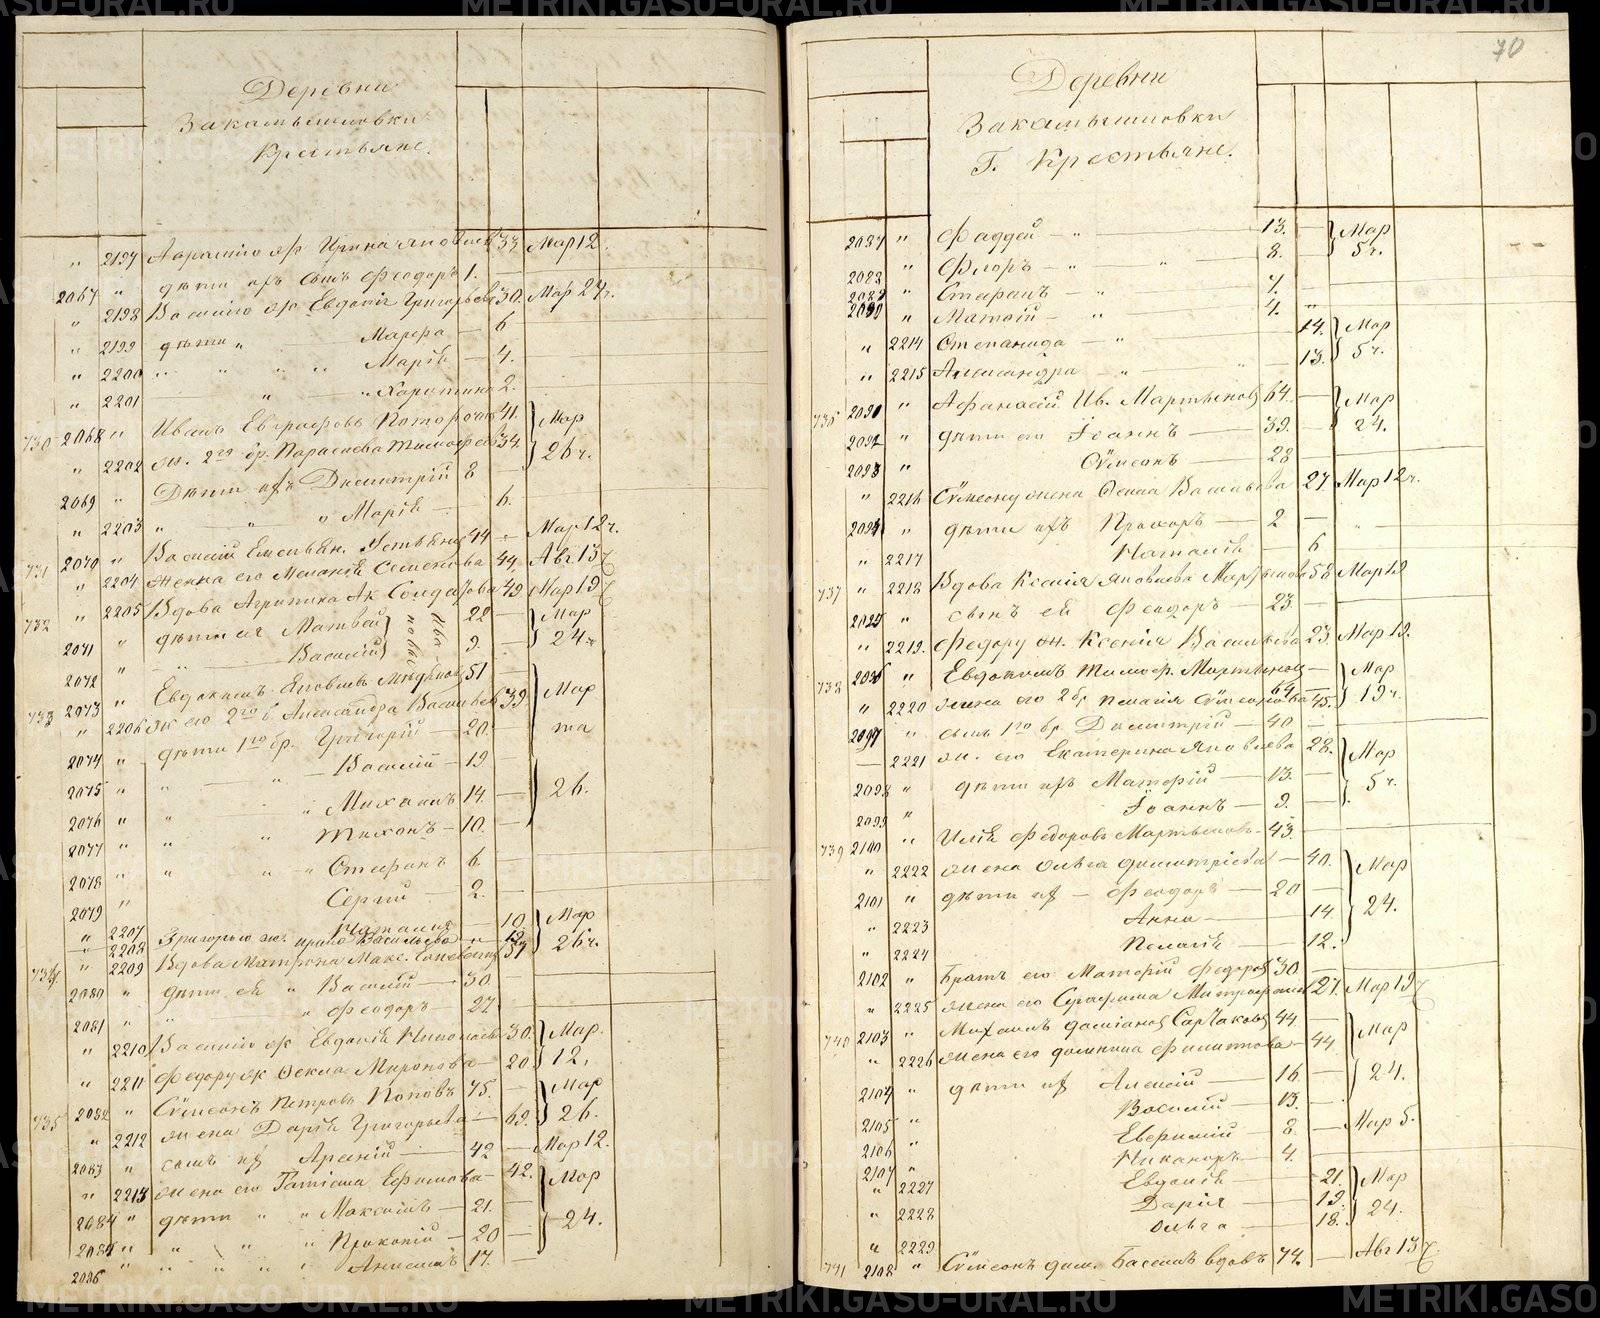 Деревни
Закамышловки
Крестьяне.
" 2197 Аврамію ж Ирина Яковлева 33. Мар 12.
2067 " дѣти ихъ сынъ Феодоръ 1.
" 2198 Василію ж Евдокія Григорьева 30. Мар 24 г.
" 2199 дѣти " Марѳа — 6
" 2200 " " " Марія — 4.
" 2201 " Харитина 2.
730 2068 " Иванъ Евграфовъ 41. Мар
" 2202 ж. 2го бр. Параскева Тимофеева 34. 26 г.
2069 " Дѣти ихъ Димитрій 8
" 2203 " " " Марія — 6.
731 2070 " Василій Емельян. Устьянц 44 — Мар 12 г.
" 2204 Жена его Меланія Семенова 44, Авг 13
732 " 2205 Вдова Агрипина Ак. Солдатова 49 Мар 19
2071 " дѣти ея Матвей 22 — Мар
2072 " " Василій 9. — 24.
733 2073 " Евдокимъ Яковлевъ 51 —
" 2206 Ж его 2го б Александра Васильева 39 Мар
2074 " дѣти 1го бр. Григорій — 20. та
2075 " " " — Василій — 19
2076 " " " Михаилъ 14. — 26.
2077 " " " Тихонъ — 10. —
2078 " " " " Стефанъ 6.
2079 " Сергій 2. —
" 2207 Наталія — 10. Мар
" 2208 Григорью ж. Ирина Васильева — " 19. 26 г.
734 " 2209 Вдова Матрона Макс. 57
2080 " дѣти ей " Василій — 30.
2081 " " " Феодоръ — 27
" 2210 Василію ж Евдокія Николаева 30. Мар.
" 2211 Федору ж Ѳекла Миронова — 20. 12.
735 2082 " Сѵмеонъ Петровъ Поповъ 75. — Мар
" 2212 жена Дарія Григорьева — 69. 26.
2083 " сынъ их Арсеній — 42 — Мар 12.
" 2213 жена его Татіана Ефимова — 42. Мар
2084 " дѣти " " Максимъ — 21.
2085 " " " " Прокопій — 20 — 24.
2086 " " " " " Анисимъ 17.
70
Деревни
Закамышловки
Г. Крестьяне.
2087 " Фаддей — " 13. Мар
2088 " Флоръ — " " 8. 5 г.
2089 " Стефанъ — " 7.
2090 " Матѳій — " 4. "
" 2214 Степанида — " 14. Мар
" 2215 Александра — " " 13. 5 г.
736 2091 " Афанасій Ив. Мартьяновъ 64. — Мар
2092 " дѣти его Іоаннъ — 39. — 24.
2093 " Сѵмеонъ — 28
" 2216 Сѵмеону жена Ѳекла Васильева 27 Мар 12 г.
2094 " дѣти ихъ Прохоръ — 2 — "
" 2217 Наталія — 6
737 " 2218 Вдова Ксенія Яковлева Мартьянова 58 Мар 19
2095 " сынъ ей Феодоръ — 23. —
" 2219. Федору ж. Ксенія Васильева 23 Мар 19.
738 2096 " Евдокимъ Тимоф. Мартьяновъ — Мар
64
" 2220 жена его 2 бр Пелагія Сѵмеонова 45. 19 г.
2097 " сынъ 1го бр. Димитрій — 40 —
— 2221 ж. его Екатерина Яковлева 28. Мар
2098 " дѣти ихъ Матѳій — 13. — 5 г.
2099 " Іоаннъ — 9. —
739 2100 " Илія Федоровъ Мартьяновъ — 43.
" 2222 жена Ольга Димитріева — 40. Мар
2101 " дѣти их — Феодоръ — 20 —
" 2223 Анна — 14. 24.
" 2224 Пелагія — 12.
2102 " Братъ его Матѳій Федоровъ 30. —
" 2225 жена его Серафима Митрофанова 27. Мар 19
740 2103 " Михаилъ Даміановъ 44. — Мар
" 2226 жена его Домника Филиппова — 44
2104 " дѣти их Алексій — 16. — 24.
2105 " Василій — 13. —
2106 " Евфимій — 8. — Мар 5.
2107 " Никаноръ — 4.
" 2227 Евдокія — 21. Мар
" 2228 Дарія — 19. 24.
" 2229 Ольга — 18.
741 2108 " Сѵмеонъ вдовъ 74. — Авг 13